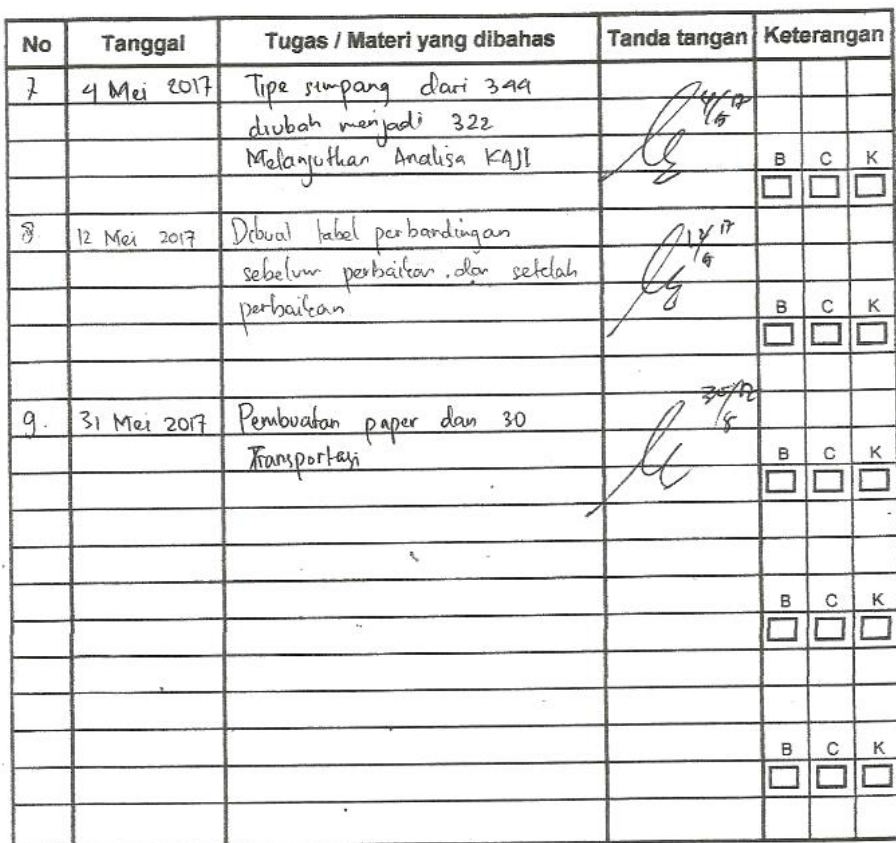 No Tanggal Tugas / Materi yang dibahas Tanda tangan Keterangan
7 4 Mei 2017 Tipe simpang dari 344
diubah menjadi 322
Melanjutkan Analisa KAJI
B C K
8. 12 Mei 2017 Dibuat tabel perbandingan
sebelum perbaikan dan setelah
perbaikan
B C K
9. 31 Mei 2017 Pembuatan paper dan 30
Transportasi
B C K
B C K
B C K